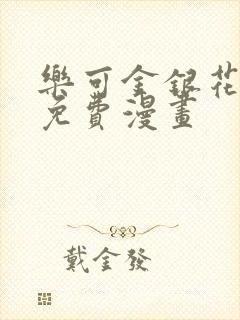 樂可金銀花
免費漫畫
戴金發